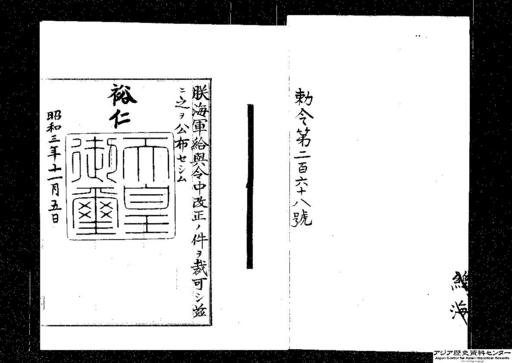 海
勅令第二百六十八號
朕海軍給與令中改正ノ件ヲ裁可シ茲
ニ之ヲ公布セシム
裕仁
天皇
御璽
昭和三年十一月五日
アジア歴史資料センター
Japan Center for Asian Historical Records